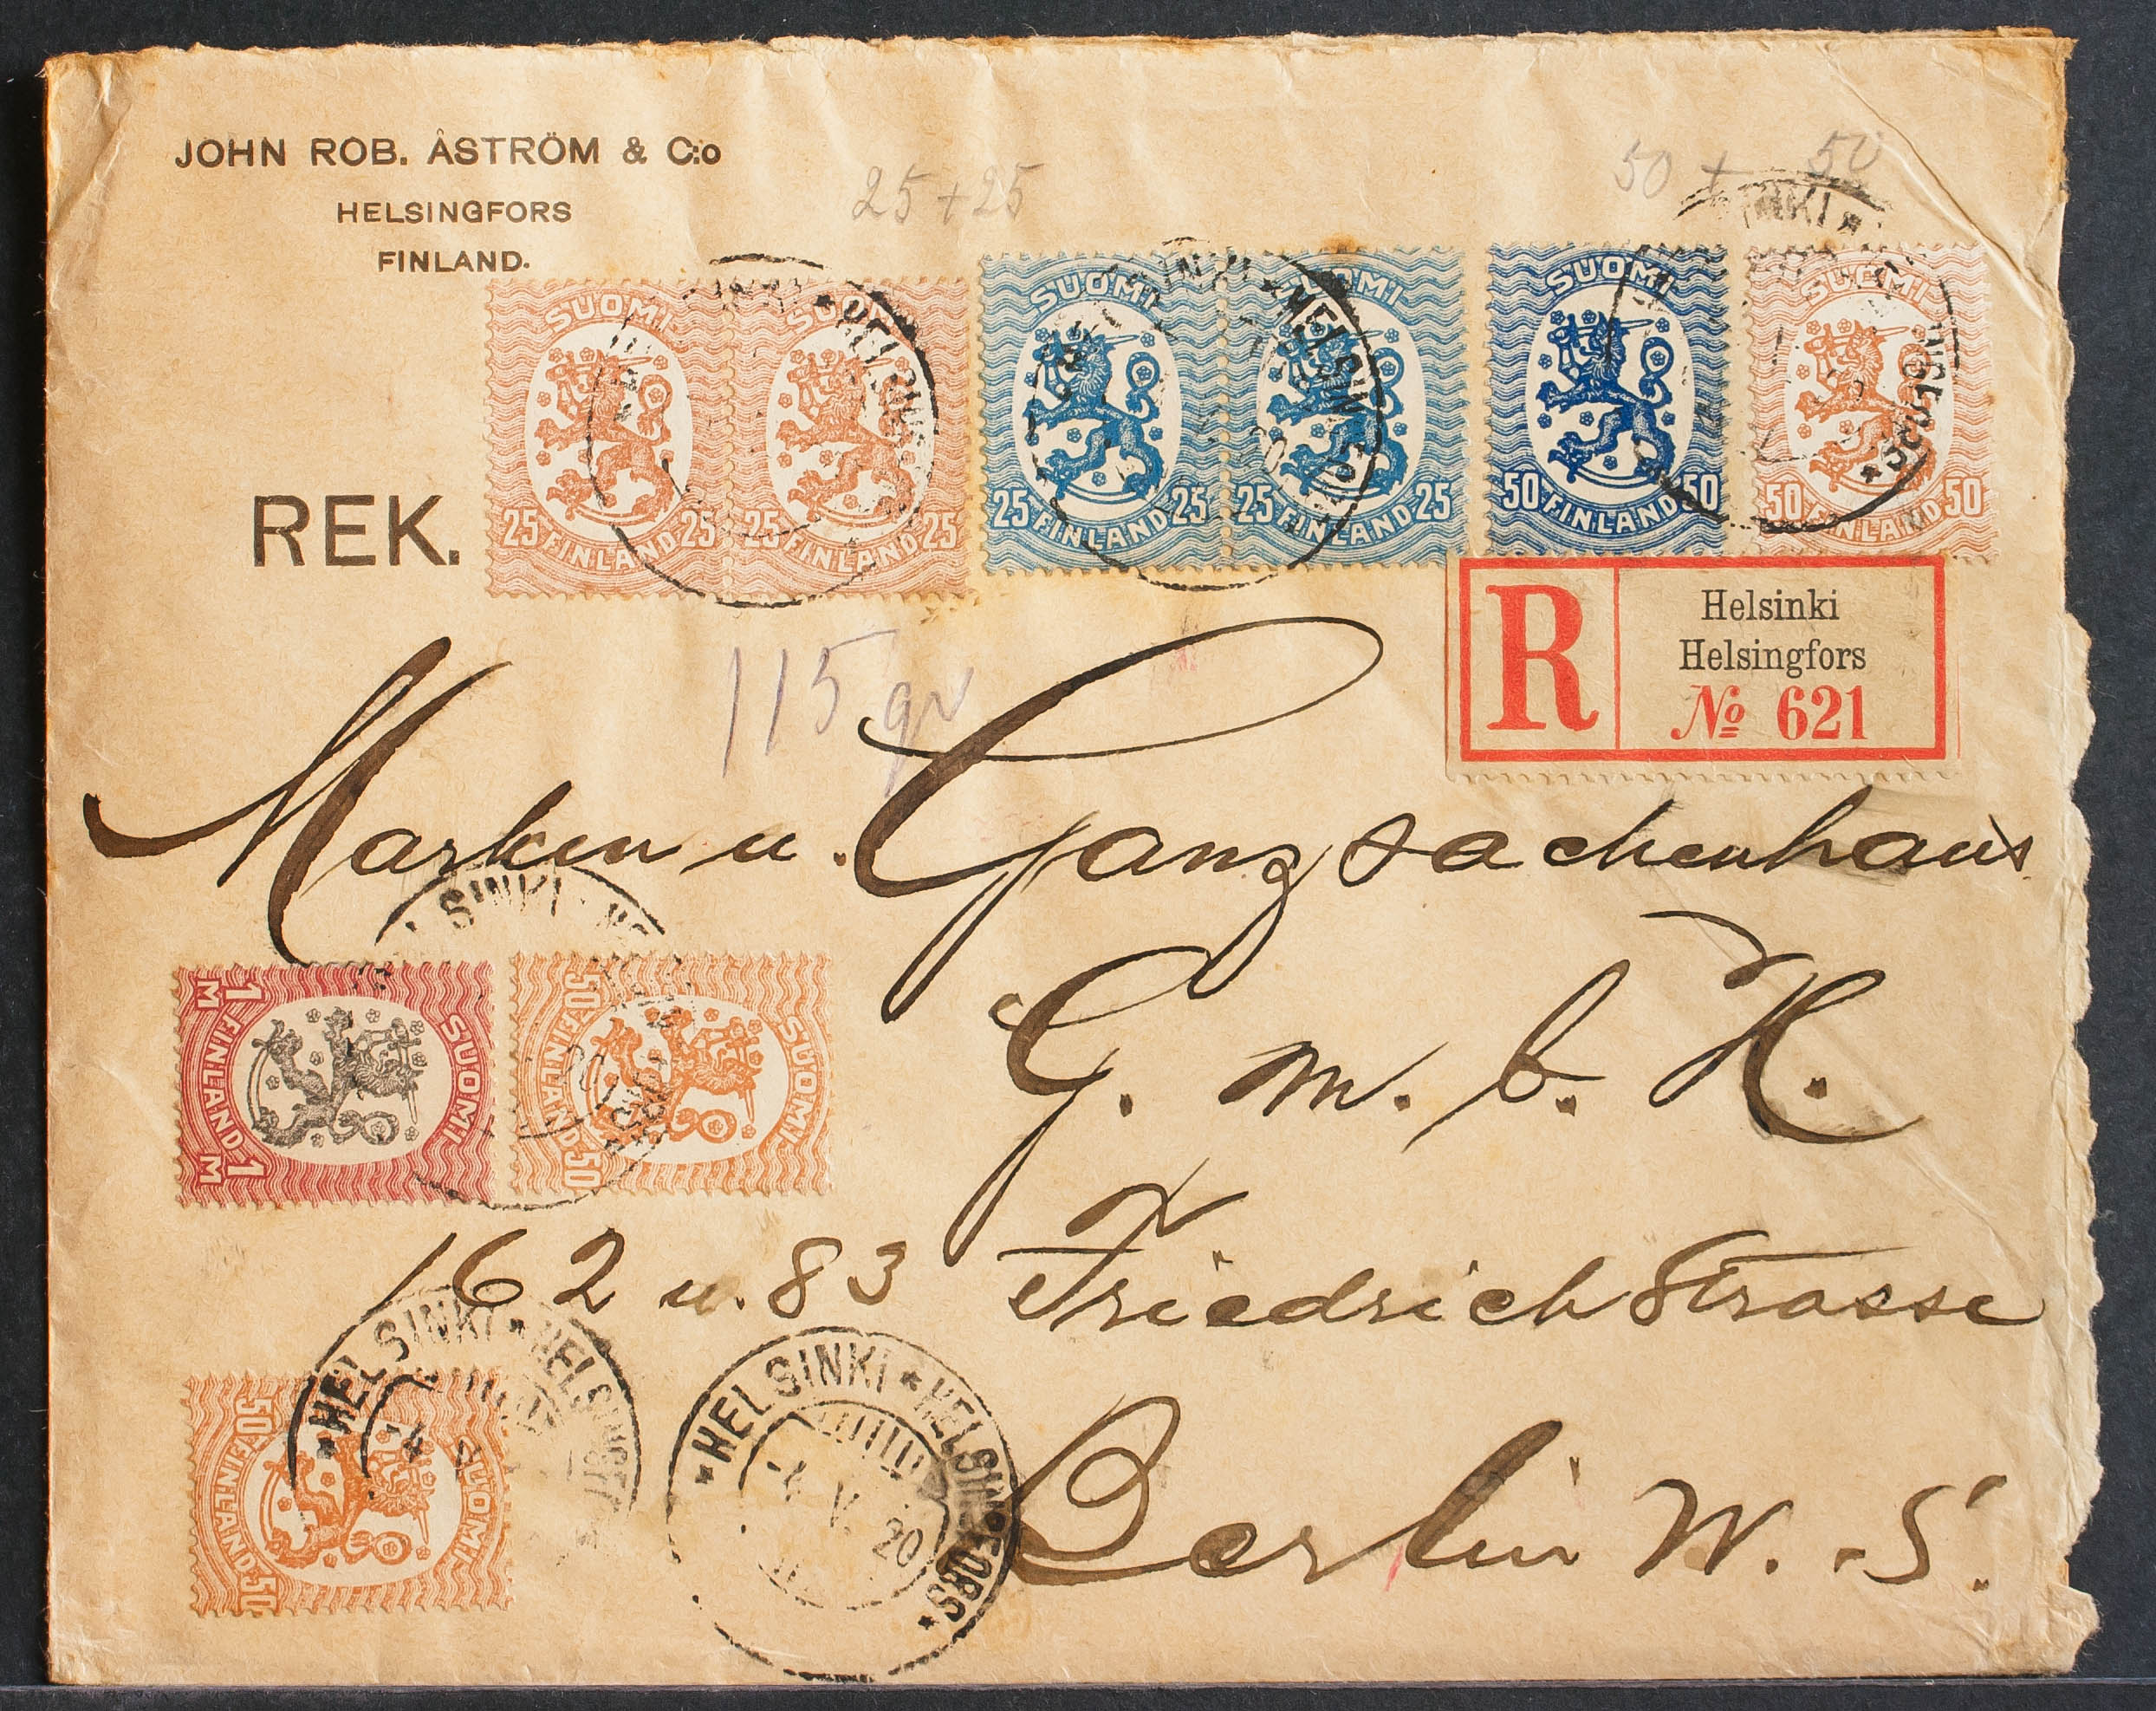 JOHN ROB. ÅSTRÖM & C:o
HELSINGFORS
FINLAND.
25 + 25
50 + 50
SUOMI
25 FINLAND 25
SUOMI
25 FINLAND 25
SUOMI
25 FINLAND 25
SUOMI
25 FINLAND 25
SUOMI
50 FINLAND 50
SUOMI
50 FINLAND 50
REK.
R
Helsinki
Helsingfors
№ 621
115 gr
Marken u. Ganzsachenhaus
G. m. b. H.
SUOMI
1 M FINLAND 1 M
SUOMI
50 FINLAND 50
162 u. 83 Friedrichstrasse
Berlin W. 8.
SUOMI
50 FINLAND 50
HELSINKI * HELSINGFORS
HELSINKI * HELSINGFORS
-4 V. 20